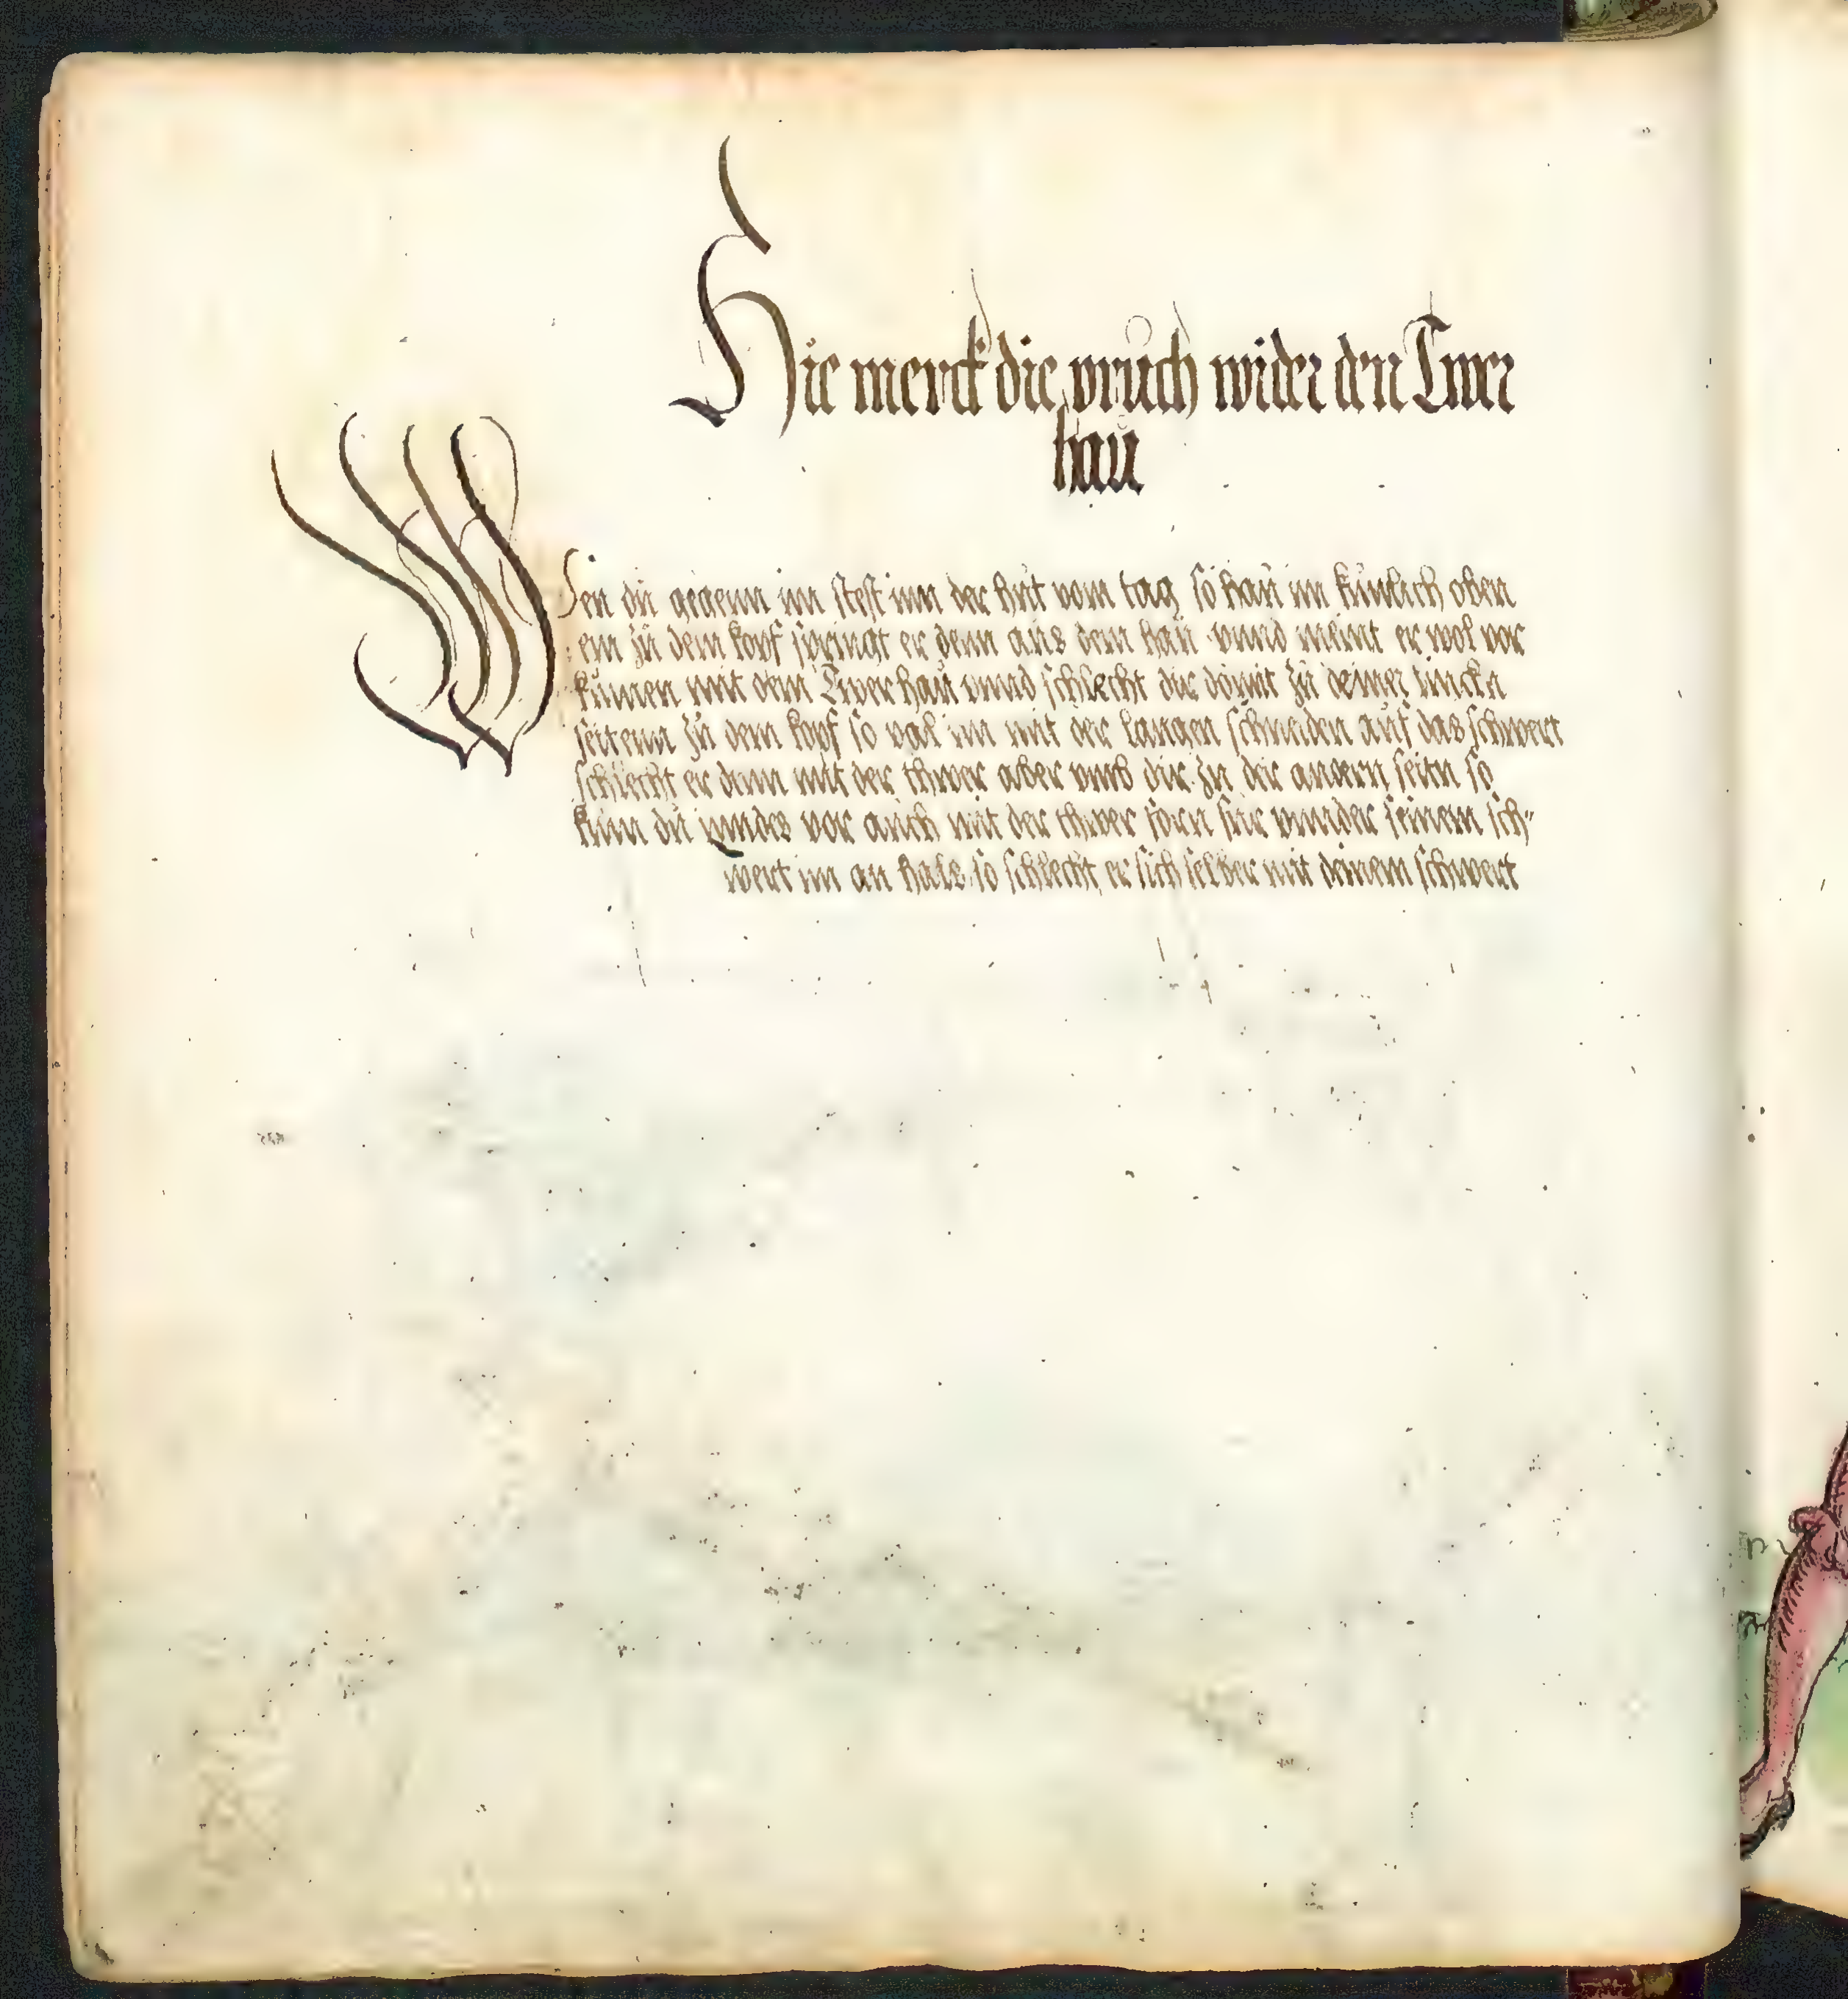 Hie merck die pruch wider den Twer
hau
Wen du gegenn im stest inn der hut vom tag so hau im künlich oben
ein zu dem kopf springt er denn aus dem hau vnnd meint er wol vor
kumen mit dem Twer hau vnnd schlecht dir domit zu deiner lincken
seitenn zu dem kopf so val im mit der langen schneiden auf das schwert
schlecht er dann mit der thwer aber vmb dir zu der andern seitn so
kum du inndes vor auch mit der thwer vorn für vnnder seinem sch-
wert im an hals so schlecht er sich selber mit deinem schwert